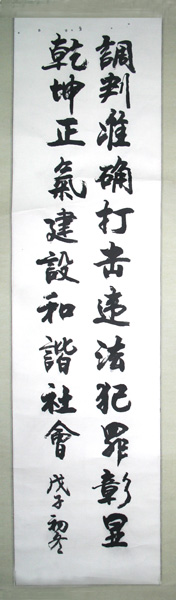 調判准确打击违法犯罪彰显
乾坤正氣建設和諧社會
戊子初冬